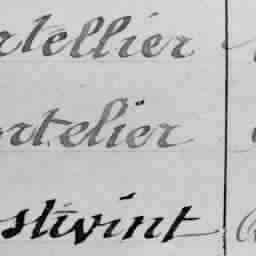 rtellier
ortelier
stivint